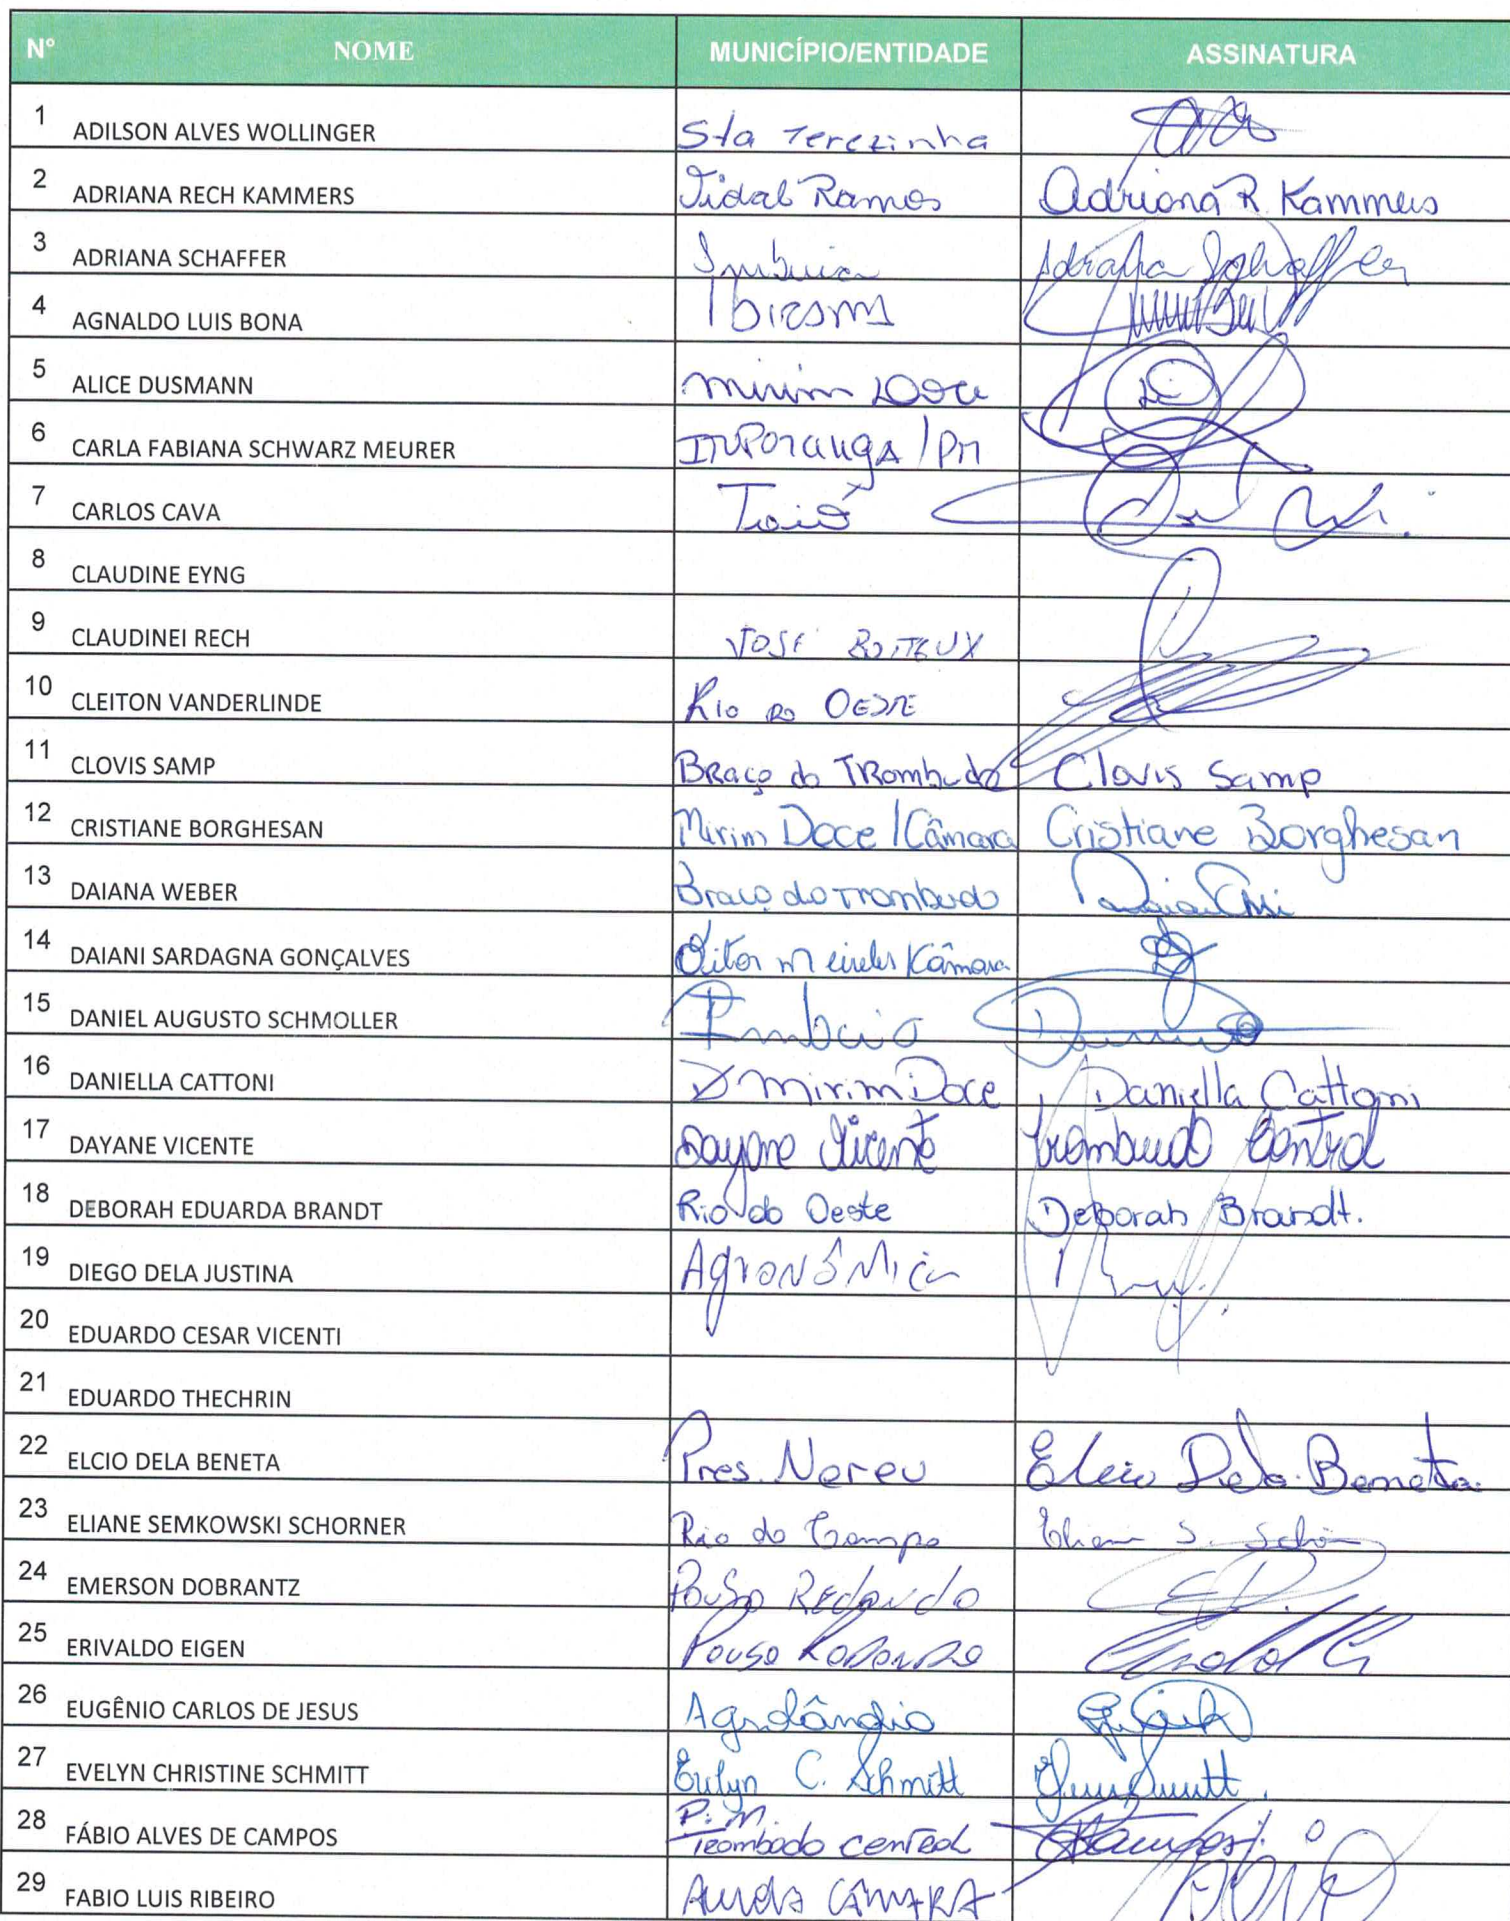 Nº NOME MUNICÍPIO/ENTIDADE ASSINATURA
1 ADILSON ALVES WOLLINGER Sta Terezinha
2 ADRIANA RECH KAMMERS Vidal Ramos Adriana R. Kammers
3 ADRIANA SCHAFFER Imbuia Adriana Schaffer
4 AGNALDO LUIS BONA Ibirama
5 ALICE DUSMANN Mirim Doce
6 CARLA FABIANA SCHWARZ MEURER ITUPORANGA / PM
7 CARLOS CAVA Taió
8 CLAUDINE EYNG
9 CLAUDINEI RECH JOSÉ BOITEUX
10 CLEITON VANDERLINDE RIO DO OESTE
11 CLOVIS SAMP BRaço do TRombudo Clovis Samp
12 CRISTIANE BORGHESAN Mirim Doce / Câmara Cristiane Borghesan
13 DAIANA WEBER Braço do Trombudo
14 DAIANI SARDAGNA GONÇALVES Vitor Meireles / Câmara
15 DANIEL AUGUSTO SCHMOLLER Imbuia
16 DANIELLA CATTONI Mirim Doce Daniella Cattoni
17 DAYANE VICENTE Dayane Vicente Trombudo Central
18 DEBORAH EDUARDA BRANDT Rio do Oeste Deborah Brandt.
19 DIEGO DELA JUSTINA Agronômica
20 EDUARDO CESAR VICENTI
21 EDUARDO THECHRIN
22 ELCIO DELA BENETA Pres. Nereu Elcio Dela Beneta
23 ELIANE SEMKOWSKI SCHORNER Rio do Campo Eliane S.
24 EMERSON DOBRANTZ Pouso Redondo
25 ERIVALDO EIGEN Pouso Redondo
26 EUGÊNIO CARLOS DE JESUS Agrolândia
27 EVELYN CHRISTINE SCHMITT Evelyn C. Schmitt
28 FÁBIO ALVES DE CAMPOS P. M.
Trombudo Central
29 FABIO LUIS RIBEIRO CÂMARA